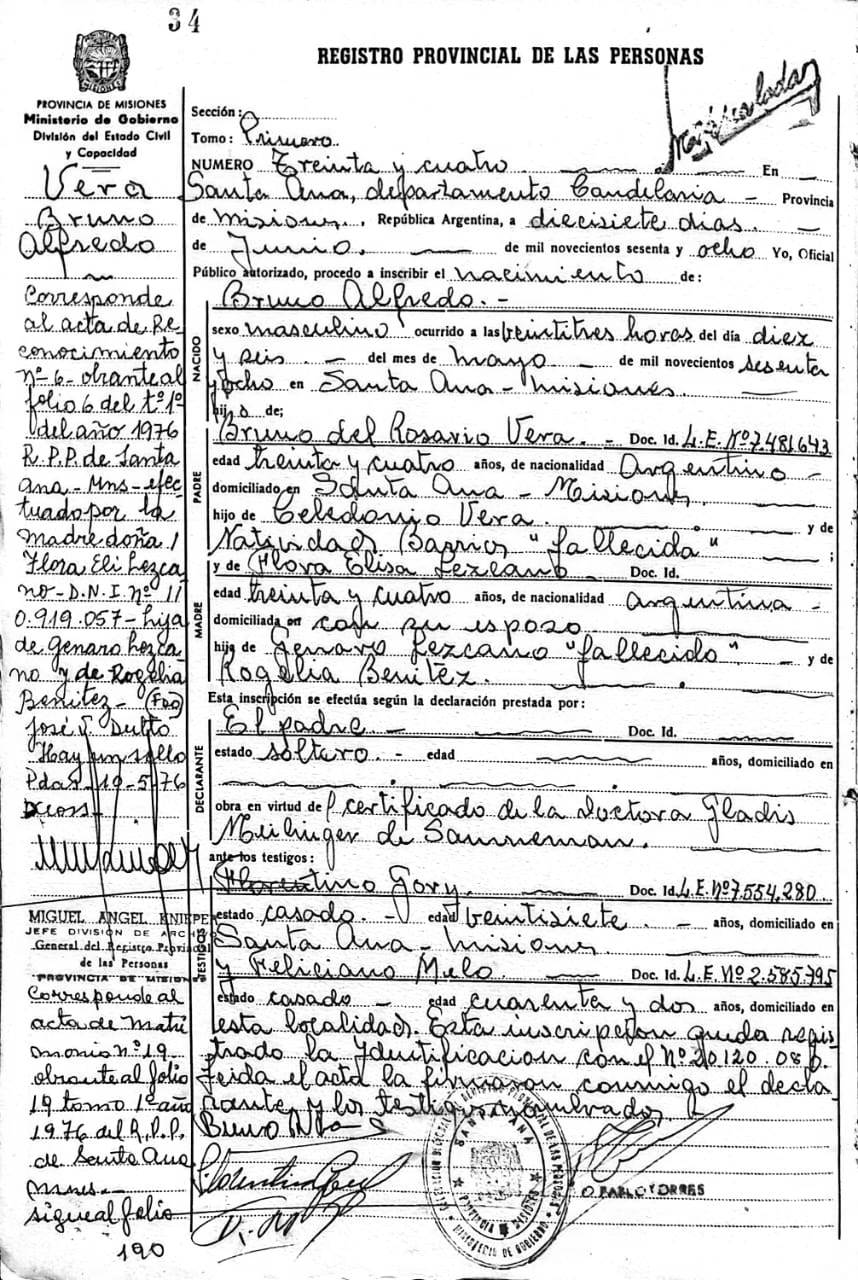 34
REGISTRO PROVINCIAL DE LAS PERSONAS
PROVINCIA DE MISIONES
Ministerio de Gobierno
División del Estado Civil
y Capacidad
Vera
Bruno
Alfredo
Corresponde
al acta de Re
conocimiento
Nº 6 - obrante al
folio 6 del tº 1º
del año 1976
R.P.P. de Santa
Ana - Mns - efec
tuado por la
Madre doña
Flora Eli Lezca
no - D.N.I. Nº 11
0.919.057 - hija
de genaro Lezca
no y de Rogelia
Benitez - (Fdo)
José
Hay un sello
Pdas - 19-5-76
MIGUEL ANGEL KNIEPE
JEFE DIVISION DE ARCHIVO
General del Registro Provincial
de las Personas
PROVINCIA DE MISIONES
Corresponde al
acta de Matri
monio nº 19
obrante al folio
19 tomo 1º año
1976 del R.P.P.
de Santa Ana
Mnes.-
sigue al folio
190
Sección:
Tomo: Primero
NUMERO Treinta y cuatro En
Santa Ana, departamento Candelaria - Provincia
de Misiones, República Argentina, a diecisiete dias
de Junio, de mil novecientos sesenta y ocho Yo, Oficial
Público autorizado, procedo a inscribir el nacimiento de:
NACIDO
Bruno Alfredo. -
sexo masculino ocurrido a las veintitres horas del día diez
y seis. - del mes de mayo - de mil novecientos sesenta
y ocho en Santa Ana - Misiones
hijo de;
PADRE
Bruno del Rosario Vera. - Doc. Id. L.E. Nº 7.481.643
edad treinta y cuatro años, de nacionalidad Argentino -
domiciliado en Santa Ana - Misiones
hijo de Celedonio Vera. y de
Natividad Barrios "fallecida" ;
MADRE
y de Flora Elisa Lezcano Doc. Id.
edad treinta y cuatro años, de nacionalidad argentina -
domiciliada en con su esposo
hija de Genaro Lezcano "fallecido" - y de
Rogelia Benitez.
Esta inscripción se efectúa según la declaración prestada por:
DECLARANTE
El padre - Doc. Id.
estado soltero. - edad años, domiciliado en
obra en virtud de certificado de la Doctora Gladis
Meilinger de Sanneman.
ante los testigos:
TESTIGOS
Florentino Gory. Doc. Id. L.E. Nº 7.554.280
estado casado. - edad veintisiete. - años, domiciliado en
Santa Ana - Misiones
y Feliciano Melo Doc. Id. L.E. Nº 2.585.795
estado casado - edad cuarenta y dos años, domiciliado en
esta localidad. Esta inscripcion queda regis
trado la Identificacion con el Nº 20.120.08
Leida el acta la firmaron conmigo el decla
rante y los testigos nombrados
SANTA ANA
PROVINCIA DE MISIONES
MINISTERIO DE GOBIERNO
O. PABLO TORRES